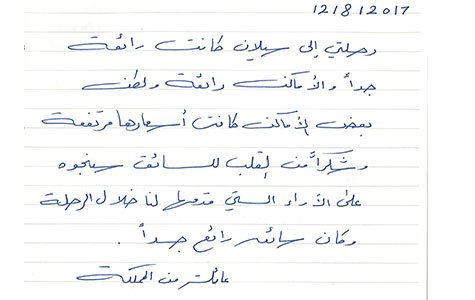 12/8/2017
رحلتي إلى سيلان كانت رائعة
جداً والأماكن رائعة ولكن
بعض الأماكن كانت أسعارها مرتفعة
وشكراً من القلب للسائق سنجوه
على الأراء التي قدمها لنا خلال الرحلة
وكان سائق رائع جداً.
من المملكة